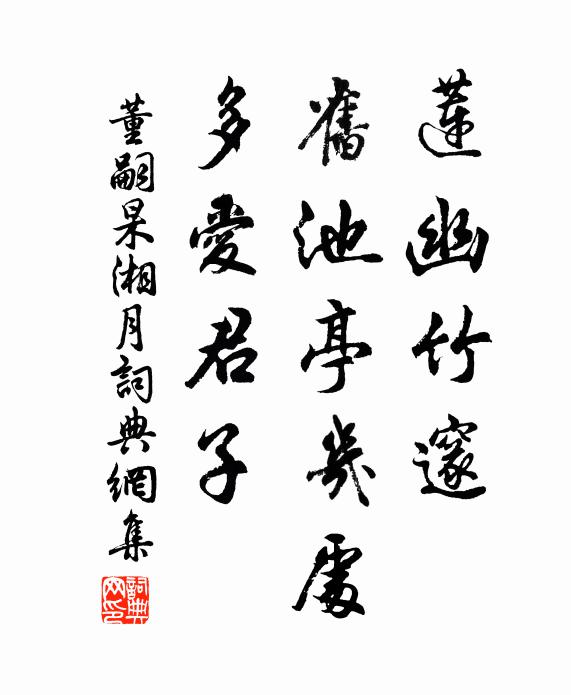 蓮幽竹邃
舊池亭幾處
多愛君子
董嗣杲湘月詞典網集
詞典网印